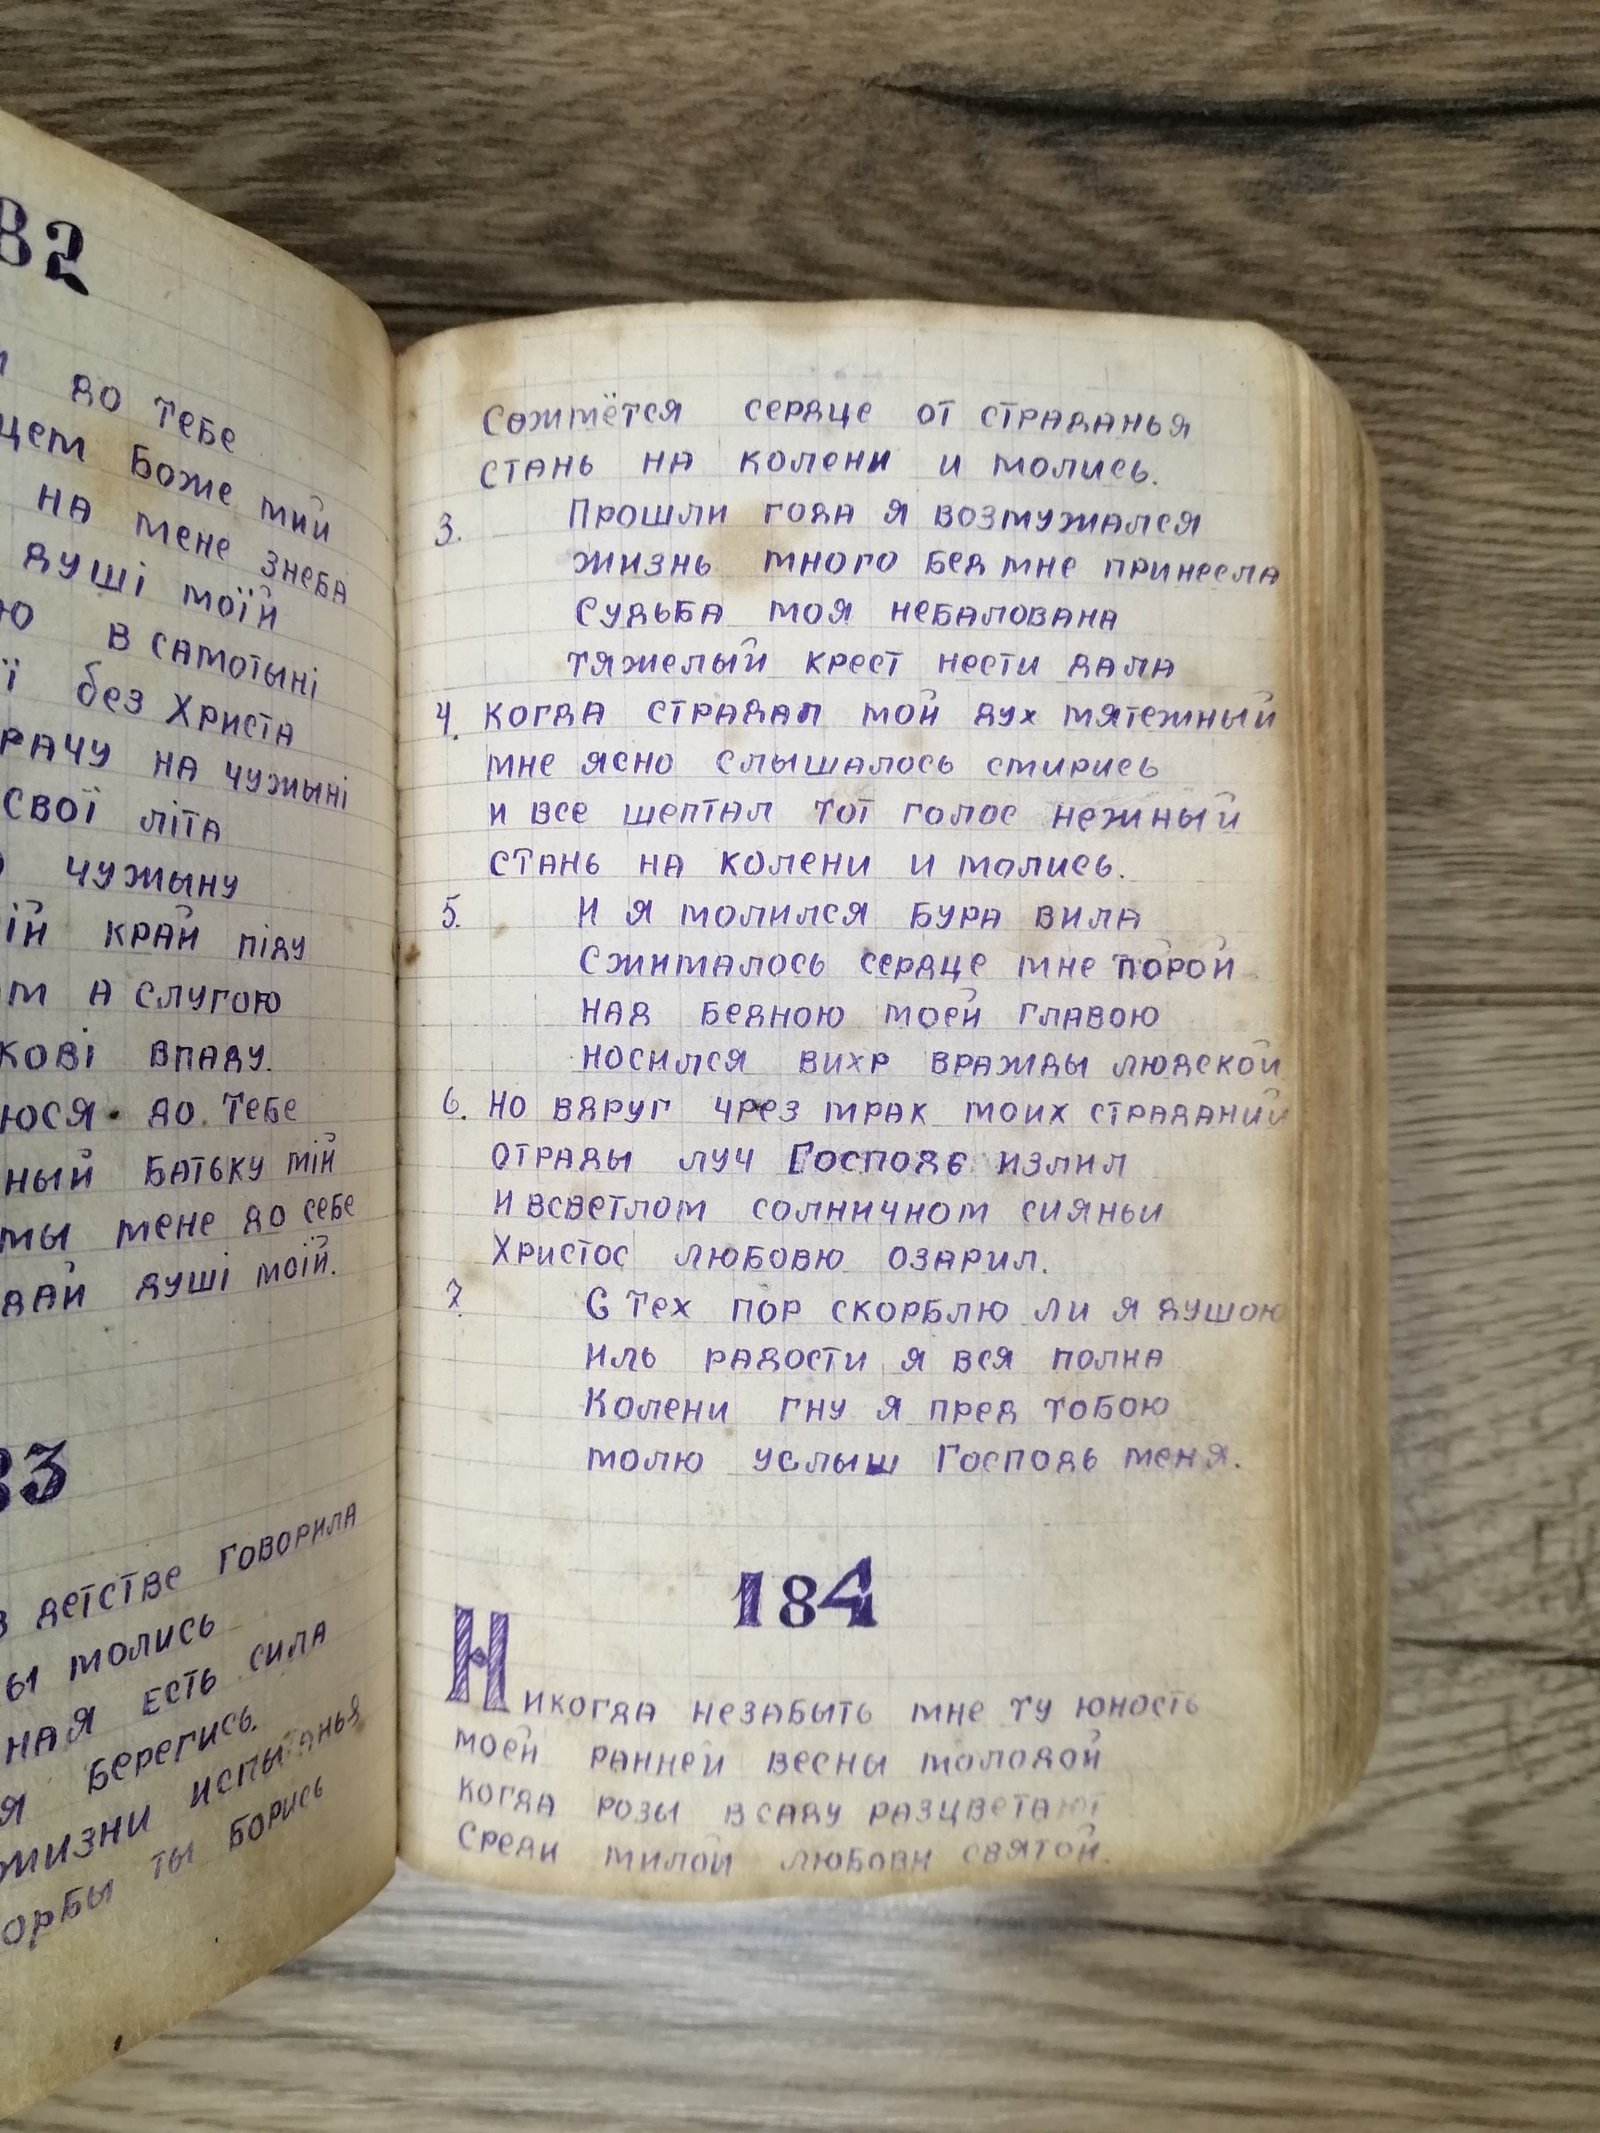 82
до тебе
Боже мий
на мене знеба
душі моїй
в самотыні
без Христа
на чужыні
свої літа
чужыну
край піду
а слугою
впаду.
до тебе
батьку мій
мене до себе
душі моїй.
83
детстве говорила
молись
есть сила
берегись.
жизни испытанья
ты борись
Сожмётся сердце от страданья
стань на колени и молись.
3. Прошли года я возмужался
жизнь много бед мне принесла
Судьба моя небалована
тяжелый крест нести дала
4. когда страдал мой дух мятежный
мне ясно слышалось смирись
и все шептал тот голос нежный
стань на колени и молись.
5. И я молился бура вила
Сжималось сердце мне порой
над бедною моей главою
носился вихр вражды людской
6. но вдруг чрез мрак моих страданий
отрады луч Господь излил
и всветлом солничном сияньи
Христос любовю озарил.
7 С тех пор скорблю ли я душою
иль радости я вся полна
Колени гну я пред тобою
молю услыш Господь меня.
184
Никогда незабыть мне ту юность
моей ранней весны молодой
когда розы всаду разцветают
Среди милой любови святой.